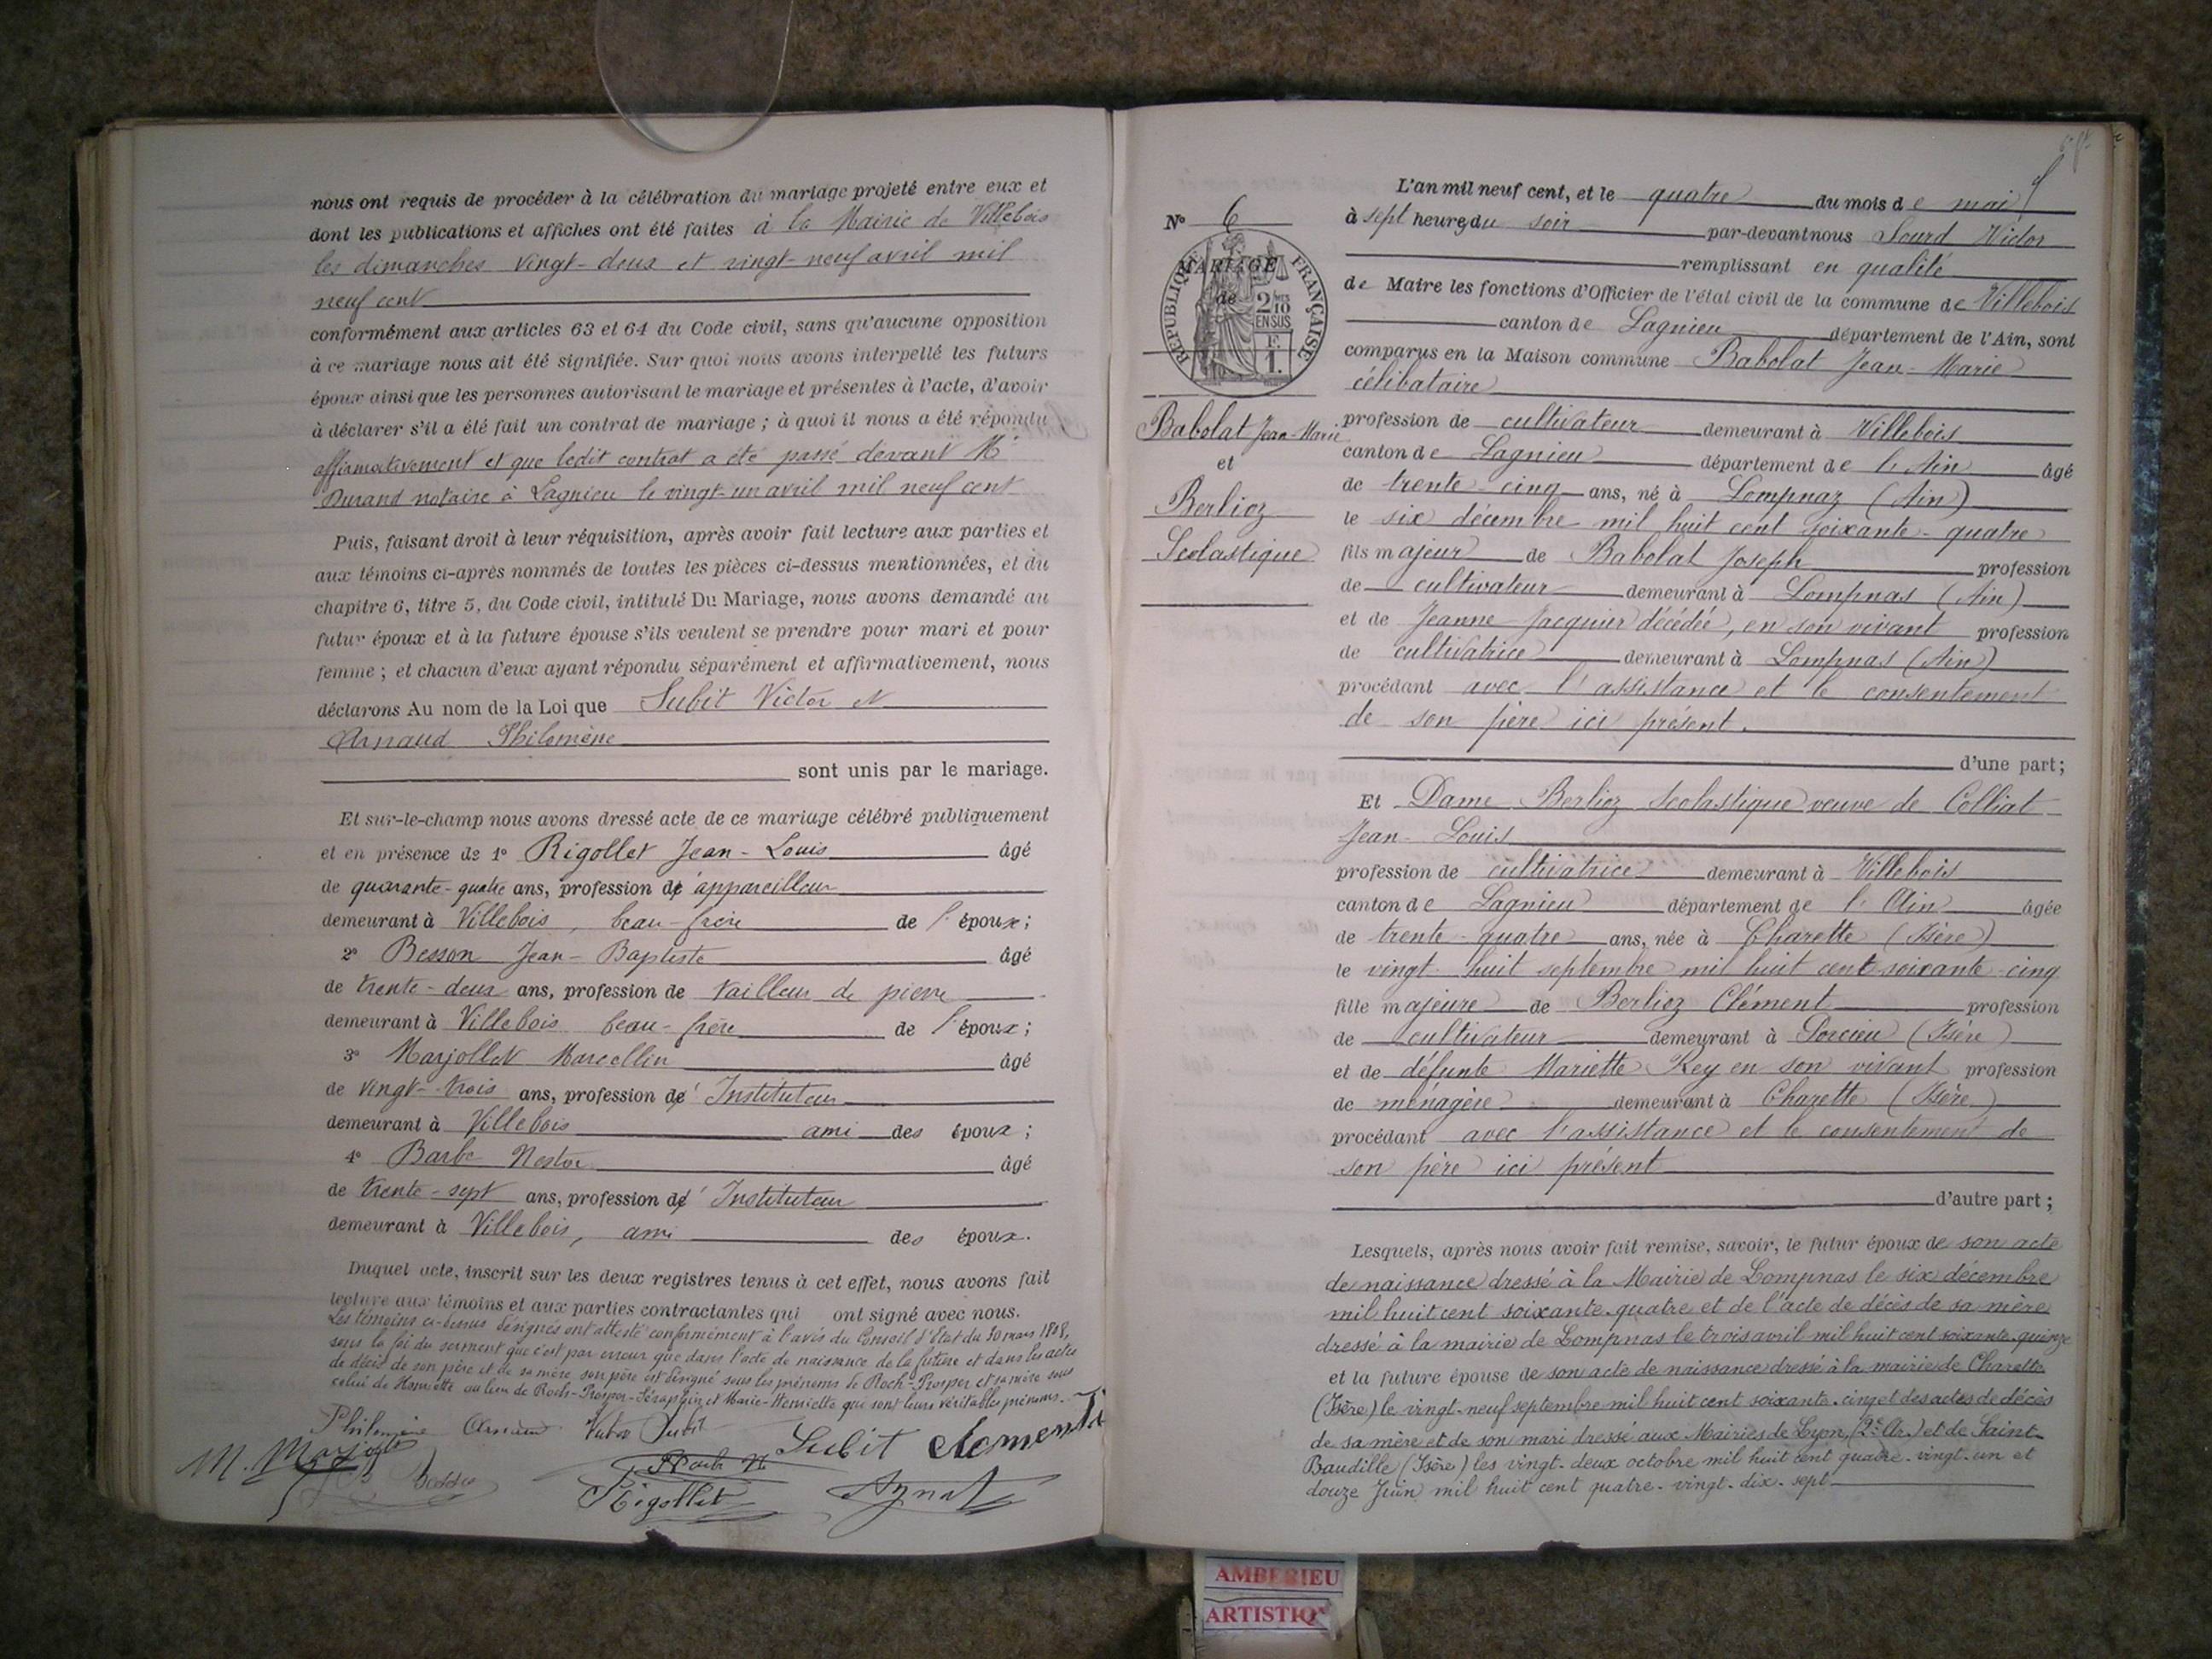 nous ont requis de procéder à la célébration du mariage projeté entre eux et
dont les publications et affiches ont été faites à la Mairie de Villebois
les dimanches vingt-deux et vingt-neuf avril mil
neuf cent
conformément aux articles 63 et 64 du Code civil, sans qu'aucune opposition
à ce mariage nous ait été signifiée. Sur quoi nous avons interpellé les futurs
époux ainsi que les personnes autorisant le mariage et présentes à l'acte, d'avoir
à déclarer s'il a été fait un contrat de mariage ; à quoi il nous a été répondu
affirmativement et que ledit contrat a été passé devant Me
Durand notaire à Lagnieu le vingt-un avril mil neuf cent
Puis, faisant droit à leur réquisition, après avoir fait lecture aux parties et
aux témoins ci-après nommés de toutes les pièces ci-dessus mentionnées, et du
chapitre 6, titre 5, du Code civil, intitulé Du Mariage, nous avons demandé au
futur époux et à la future épouse s'ils veulent se prendre pour mari et pour
femme ; et chacun d'eux ayant répondu séparément et affirmativement, nous
déclarons Au nom de la Loi que Subit Victor et
Arnaud Philomène
sont unis par le mariage.
Et sur-le-champ nous avons dressé acte de ce mariage célébré publiquement
et en présence de 1° Rigollet Jean-Louis âgé
de quarante-quatre ans, profession d'appareilleur
demeurant à Villebois, beau-frère de l'époux ;
2° Besson Jean-Baptiste âgé
de trente-deux ans, profession de tailleur de pierre
demeurant à Villebois beau-frère de l'époux ;
3° Marjollet Marcellin âgé
de vingt-trois ans, profession d'Instituteur
demeurant à Villebois ami des époux ;
4° Barbe Nestor âgé
de trente-sept ans, profession d'Instituteur
demeurant à Villebois, ami des époux.
Duquel acte, inscrit sur les deux registres tenus à cet effet, nous avons fait
lecture aux témoins et aux parties contractantes qui ont signé avec nous.
Les témoins ci-dessus désignés ont attesté conformément à l'avis du Conseil d'Etat du 30 mars 1808,
sous la foi du serment que c'est par erreur que dans l'acte de naissance de la future et dans les actes
de décès de son père et de sa mère son père est désigné sous les prénoms de Roch-Prosper et sa mère sous
celui de Henriette au lieu de Roch-Prosper-Séraphin et Marie-Henriette qui sont leurs véritables prénoms.
Philomène Arnaud Victor Subit Subit Clementi
M. Marjollet Besson Barbe N
Rigollet
N° 6
MARIAGE
de
RÉPUBLIQUE FRANÇAISE
2/10
EN SUS
F
1.
Babolat Jean-Marie
et
Berlioz
Scolastique
L'an mil neuf cent, et le quatre du mois de mai
à sept heures du soir par-devant nous Sourd Victor
remplissant en qualité
de Maire les fonctions d'Officier de l'état civil de la commune de Villebois
canton de Lagnieu département de l'Ain, sont
comparus en la Maison commune Babolat Jean-Marie
célibataire
profession de cultivateur demeurant à Villebois
canton de Lagnieu département de l'Ain âgé
de trente-cinq ans, né à Lompnaz (Ain)
le six décembre mil huit cent soixante-quatre
fils majeur de Babolat Joseph profession
de cultivateur demeurant à Lompnas (Ain)
et de Jeanne Jacquier décédée, en son vivant profession
de cultivatrice demeurant à Lompnas (Ain)
procédant avec l'assistance et le consentement
de son père ici présent.
d'une part ;
Et Dame Berlioz Scolastique veuve de Colliat
Jean-Louis
profession de cultivatrice demeurant à Villebois
canton de Lagnieu département de l'Ain âgée
de trente-quatre ans, née à Charette (Isère)
le vingt-huit septembre mil huit cent soixante-cinq
fille majeure de Berlioz Clément profession
de cultivateur demeurant à Porcieu (Isère)
et de défunte Mariette Rey en son vivant profession
de ménagère demeurant à Charette (Isère)
procédant avec l'assistance et le consentement de
son père ici présent
d'autre part ;
Lesquels, après nous avoir fait remise, savoir, le futur époux de son acte
de naissance dressé à la Mairie de Lompnas le six décembre
mil huit cent soixante-quatre et de l'acte de décès de sa mère
dressé à la mairie de Lompnas le trois avril mil huit cent soixante-quinze
et la future épouse de son acte de naissance dressé à la mairie de Charette
(Isère) le vingt-neuf septembre mil huit cent soixante-cinq et des actes de décès
de sa mère et de son mari dressé aux Mairies de Lyon (2e Ar.) et de Saint-
Baudille (Isère) les vingt-deux octobre mil huit cent quatre-vingt-un et
douze Juin mil huit cent quatre-vingt-dix-sept
AMBERIEU
ARTISTIQ